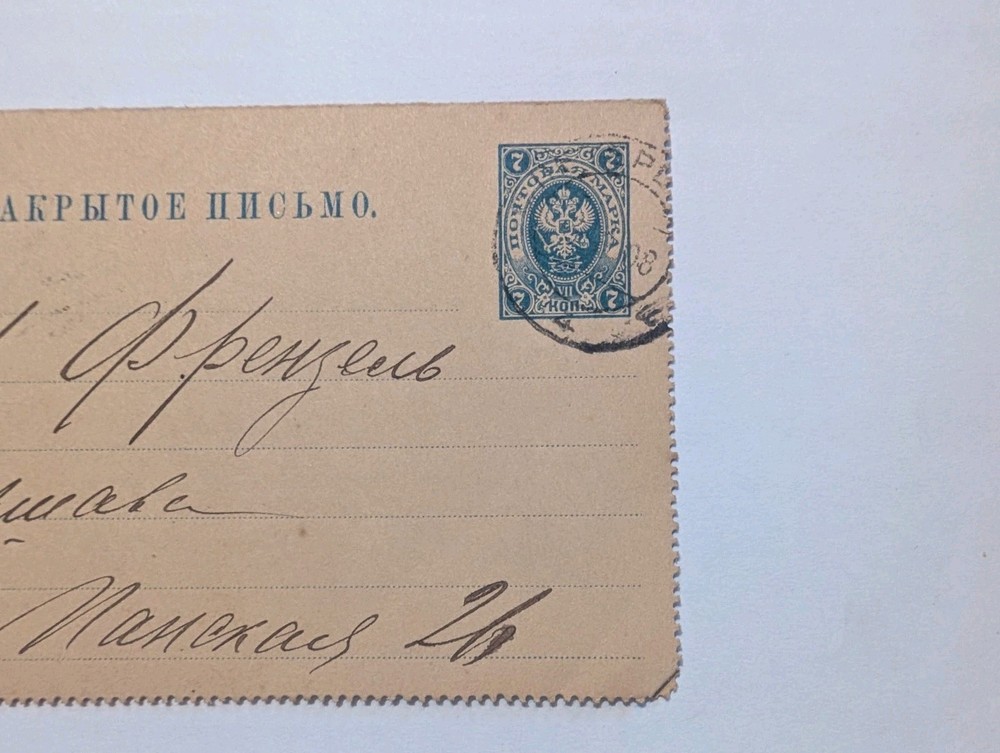 АКРЫТОЕ ПИСЬМО.
7 7
ПОЧТОВАЯ МАРКА
VII
КОП.
7 7
08
Френзель
шава
Панская